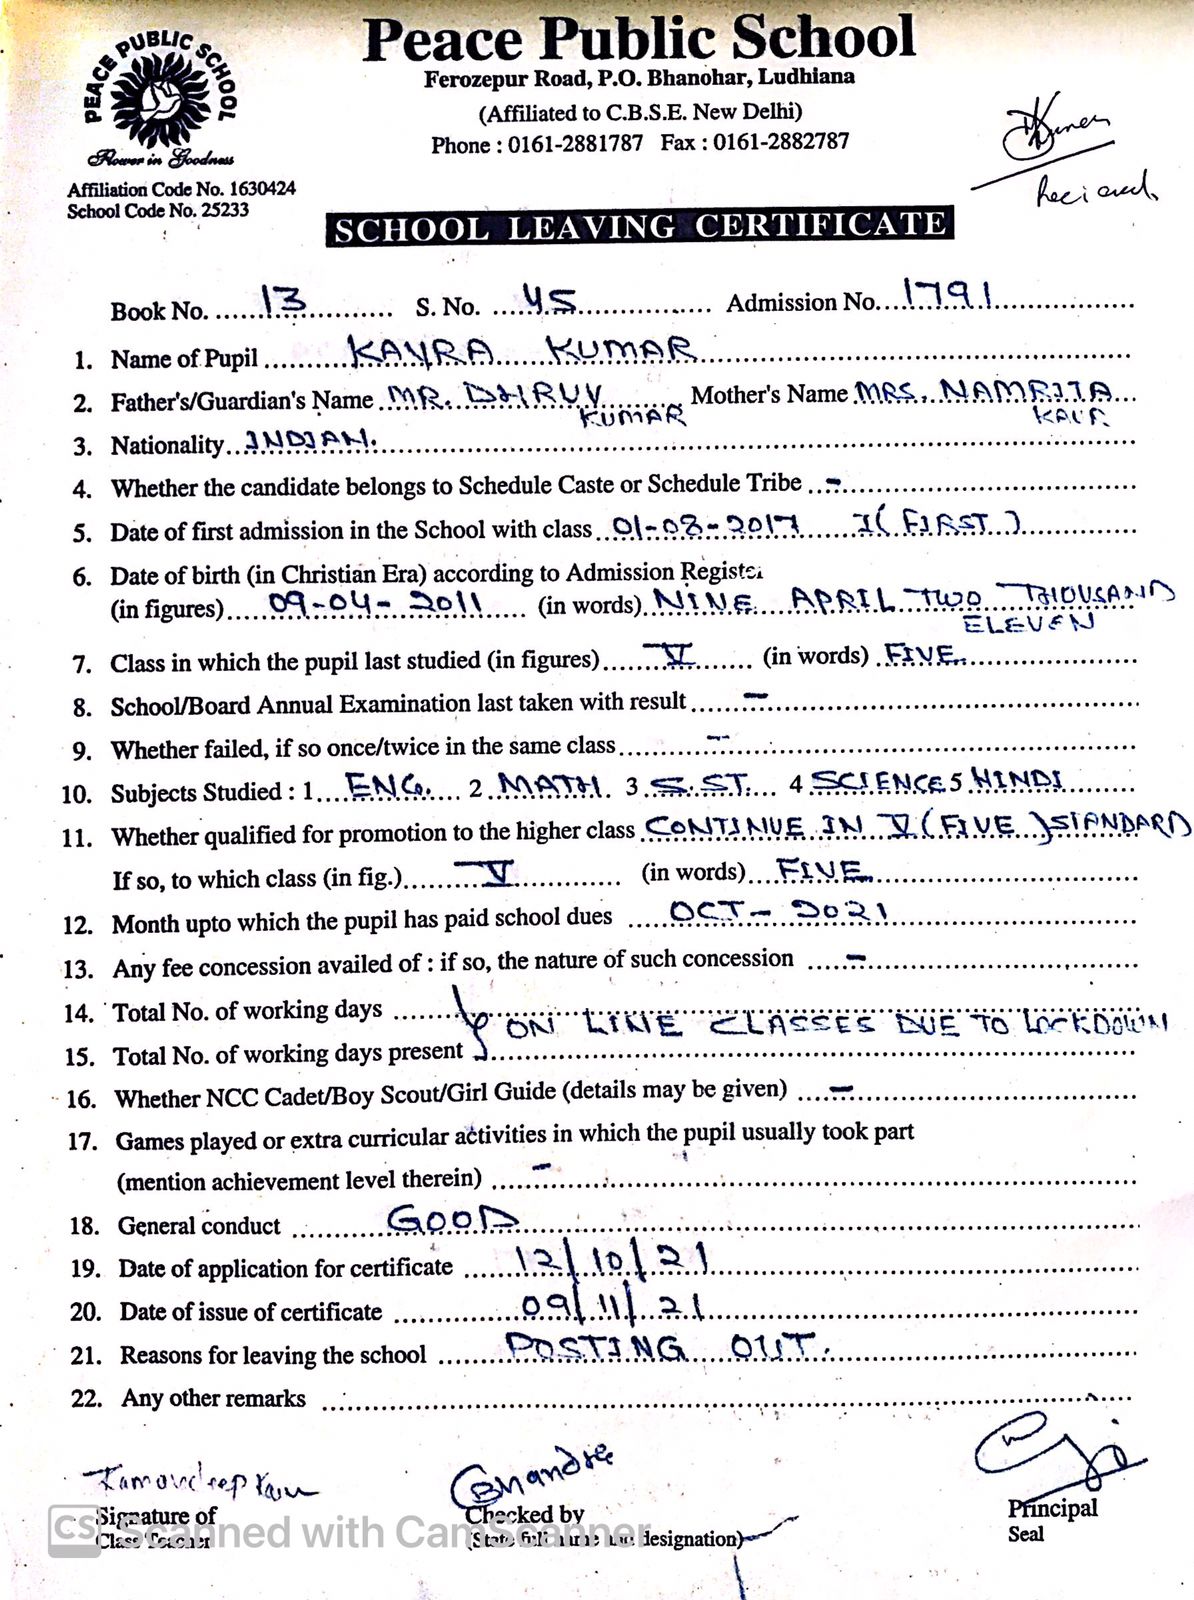 PEACE PUBLIC SCHOOL
Flower in Goodness
Affiliation Code No. 1630424
School Code No. 25233
Peace Public School
Ferozepur Road, P.O. Bhanohar, Ludhiana
(Affiliated to C.B.S.E. New Delhi)
Phone : 0161-2881787 Fax : 0161-2882787
SCHOOL LEAVING CERTIFICATE
Book No. 13 S. No. 45 Admission No. 1791
1. Name of Pupil KAYRA KUMAR
2. Father's/Guardian's Name MR. DHRUV Mother's Name MRS. NAMRITA
KUMAR KAUR
3. Nationality INDIAN.
4. Whether the candidate belongs to Schedule Caste or Schedule Tribe -
5. Date of first admission in the School with class 01-08-2017 I (FIRST)
6. Date of birth (in Christian Era) according to Admission Register
(in figures) 09-04-2011 (in words) NINE APRIL TWO THOUSAND
ELEVEN
7. Class in which the pupil last studied (in figures) V (in words) FIVE.
8. School/Board Annual Examination last taken with result -
9. Whether failed, if so once/twice in the same class -
10. Subjects Studied : 1 ENG. 2 MATH. 3 S.ST. 4 SCIENCE 5 HINDI
11. Whether qualified for promotion to the higher class CONTINUE IN V (FIVE) STANDARD
If so, to which class (in fig.) V (in words) FIVE
12. Month upto which the pupil has paid school dues OCT - 2021
13. Any fee concession availed of : if so, the nature of such concession -
14. Total No. of working days
ON LINE CLASSES DUE TO LOCKDOWN
15. Total No. of working days present
16. Whether NCC Cadet/Boy Scout/Girl Guide (details may be given) -
17. Games played or extra curricular activities in which the pupil usually took part
(mention achievement level therein) -
18. General conduct GOOD
19. Date of application for certificate 12/10/21
20. Date of issue of certificate 09/11/21
21. Reasons for leaving the school POSTING OUT.
22. Any other remarks
Signature of
Class Teacher
Checked by
(State full name and designation)
Principal
Seal
CS Scanned with CamScanner